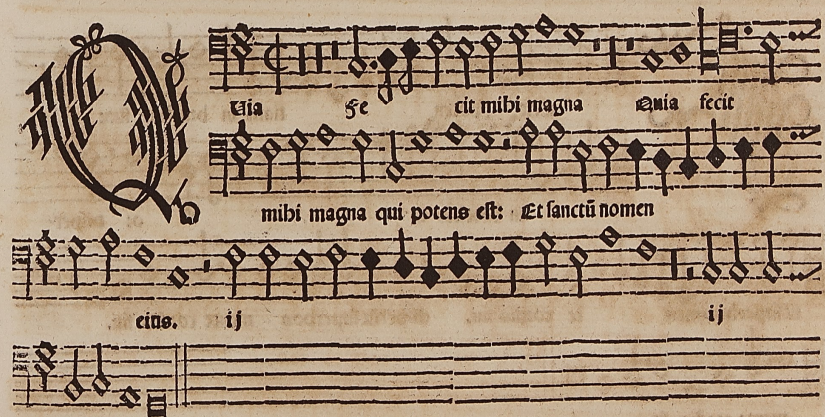 QVia Fe cit mihi magna Quia fecit
mihi magna qui potens est: Et sanctū nomen
eius. ij ij